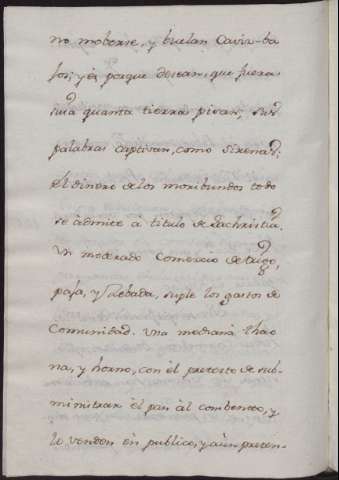 no moberse, y buelan Cavis-ba
jos; y es porque desean, que fuera
suia quanta tierra pisan, sus
palabras captivan, como Sirenas;
El dinero de los moribundos todo
se àdmite à titulo de Sachristia.
Un moderado Comercio de trigo,
paja, y Zebada, suple los gastos de
Comunidad. Una mediana Thaona
na, y horno, con èl pretexto de sub-
ministrar el pan àl combento, y
lo venden èn publico, y aùn preten-